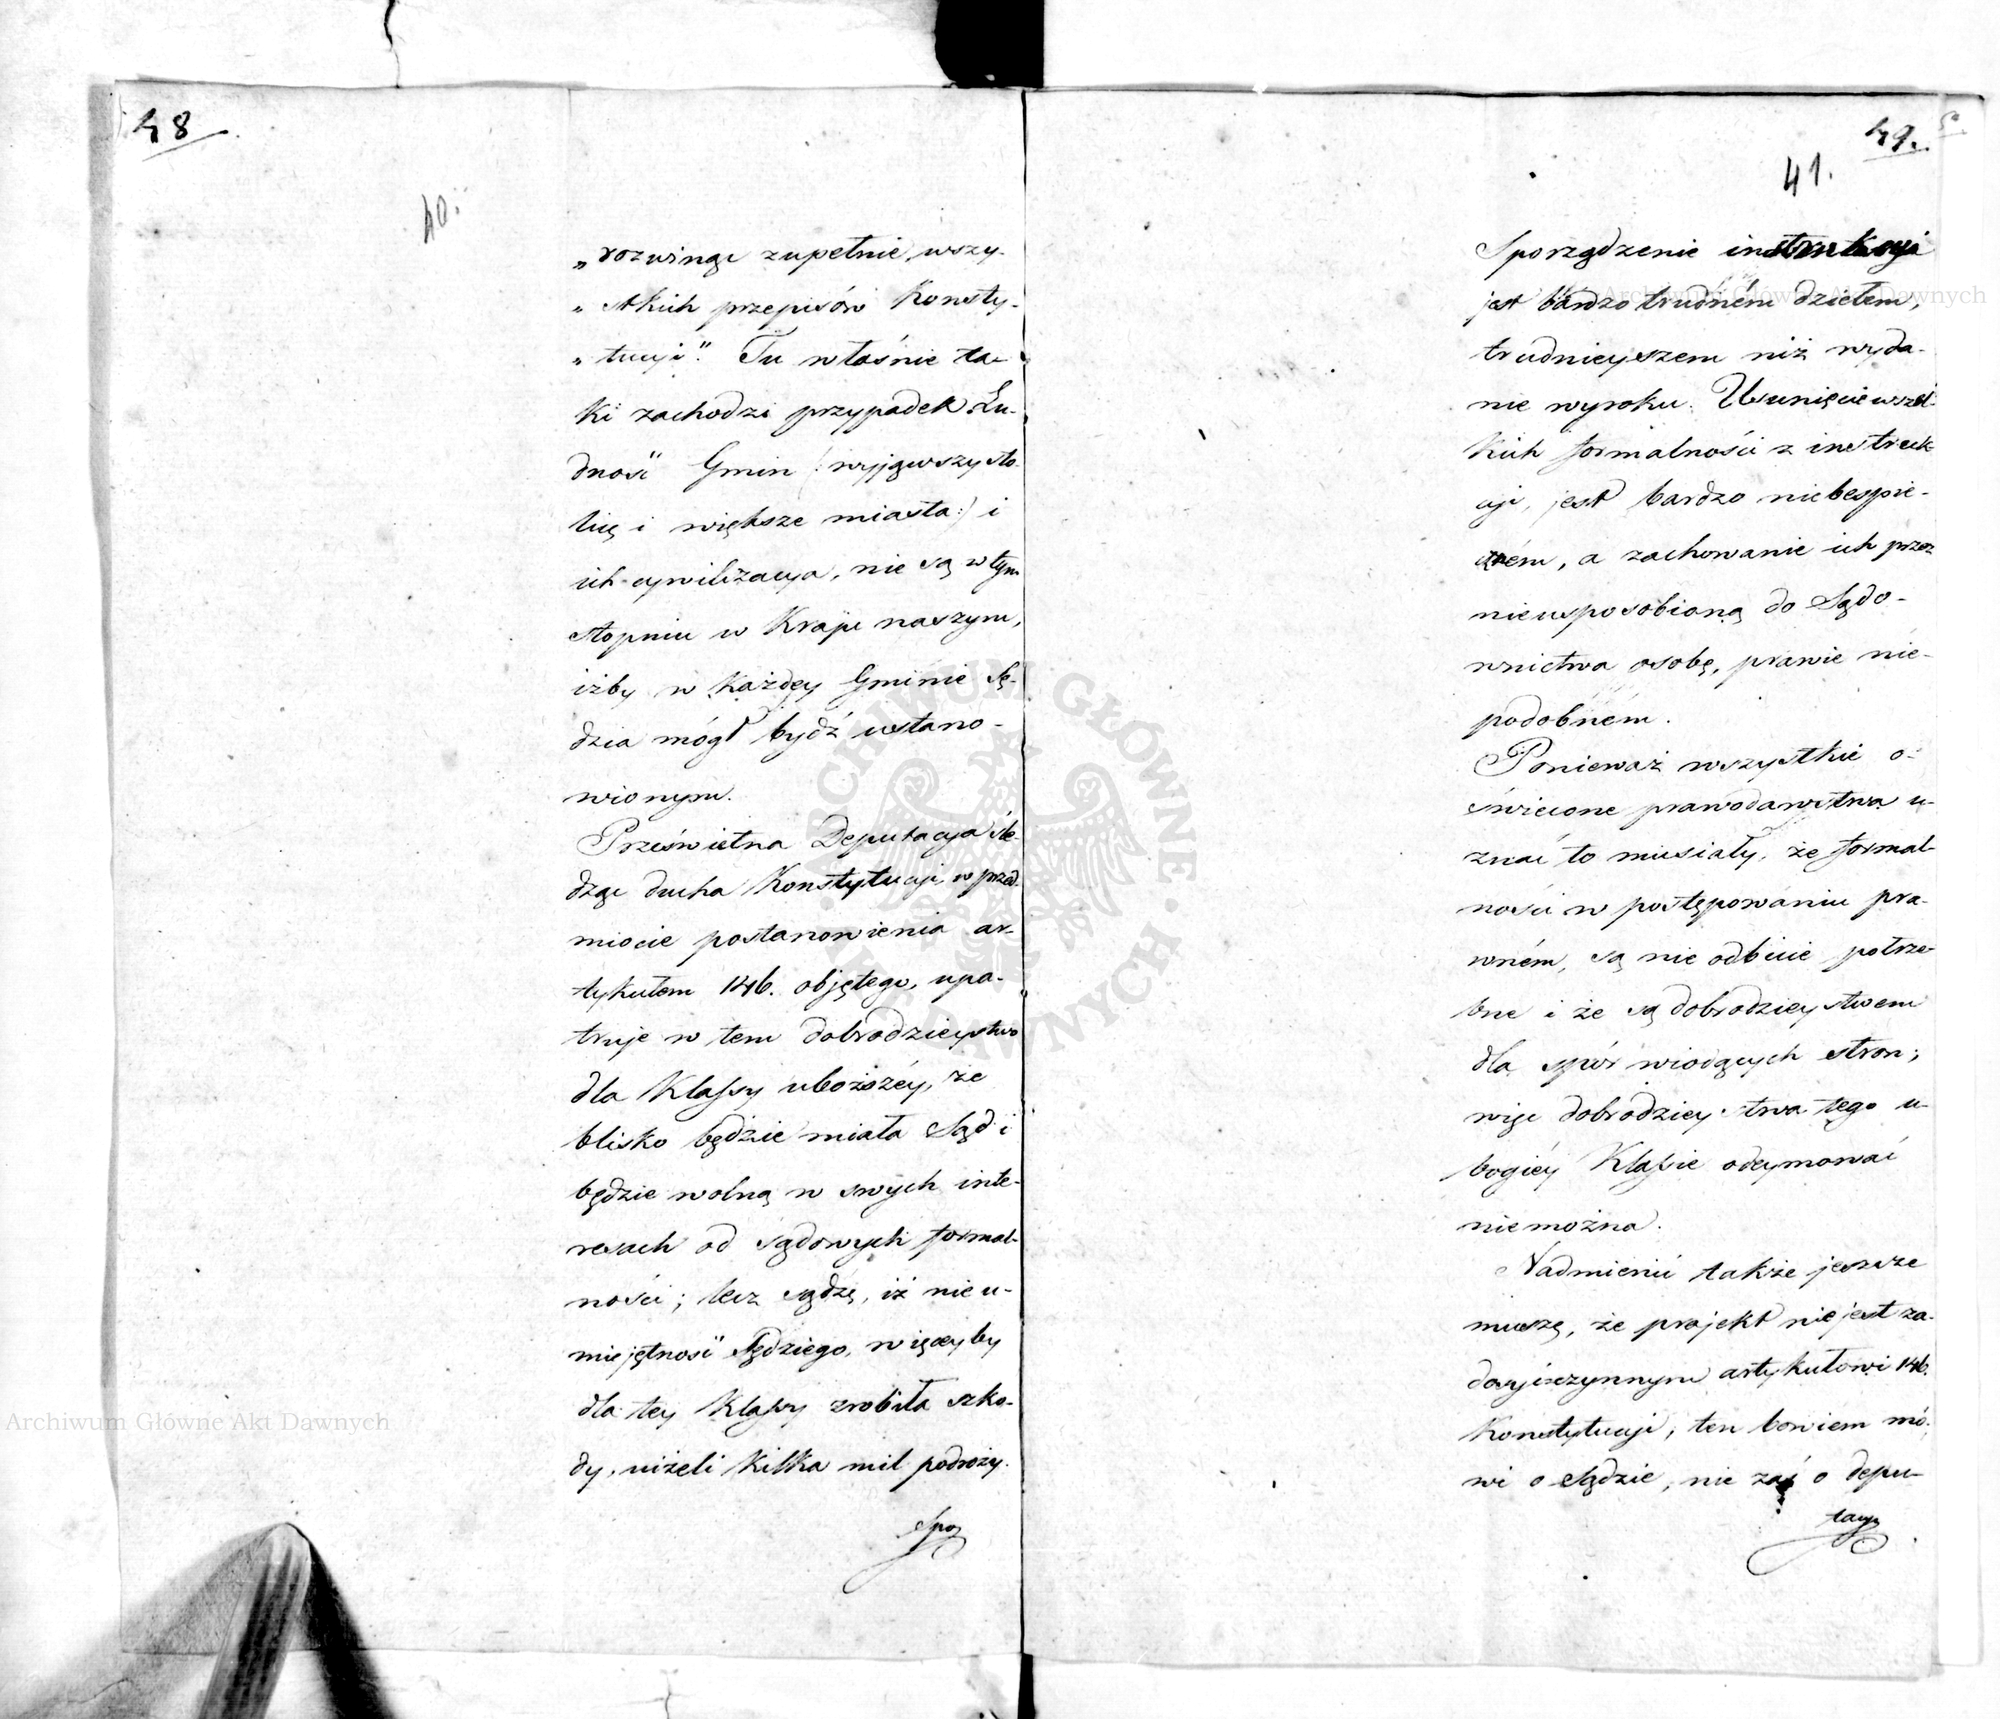 48
40.
„rozwinąc zupełnie wszy-
„stkich przepisów Konsty-
„tucyi." Tu właśnie ta-
ki zachodzi przypadek Lu-
dność Gmin (: wyjąwszy sto-
licę i większe miasta :) i
ich cywilizacya, nie są w tym
stopniu w Kraju naszym,
iżby w każdey Gminie Sę-
dzia mógł bydź ustano-
wionym.
Prześwietna Deputacya śle-
dząc ducha Konstytucyi w przed-
miocie postanowienia ar-
tykułem 146. objętego, upa-
truje w tem dobrodzieystwo
dla Klassy uboższéy, że
blisko będzie miała Sąd i
będzie wolną w swych inte-
resach od sądowych formal-
ności; lecz sądzę, iż nieu-
miejętność Sędziego, więcey by
dla tey Klassy zrobiła szko-
dy, niżeli kilka mil podroży.
Spo
49.
41.
Sporządzenie instrukcyi
jest bardzo trudném dziełem,
trudnieyszem niż wyda-
nie wyroku. Usunięcie wszel-
kich formalności z instruk-
cyi, jest bardzo niebespie-
czném, a zachowanie ich przez
nieusposobioną do Sądo-
wnictwa osobę, prawie nie-
podobném.
Ponieważ wszystkie o-
świecone prawodawstwa u-
znać to musiały, że formal-
ności w postępowaniu pra-
wném, są nieodbicie potrze-
bne i że są dobrodzieystwem
dla spór wiodących stron;
więc dobrodzieystwa tego u-
bogiéy Klassie odeymować
niemożna.
Nadmienić także jeszcze
muszę, że projekt nie jest za-
dosyćczynnym artykułowi 146.
Konstytucyi; ten bowiem mó-
wi o Sądzie, nie zaś o depu-
tacy
ARCHIWUM GŁÓWNE AKT DAWNYCH
Archiwum Główne Akt Dawnych
Archiwum Główne Akt Dawnych